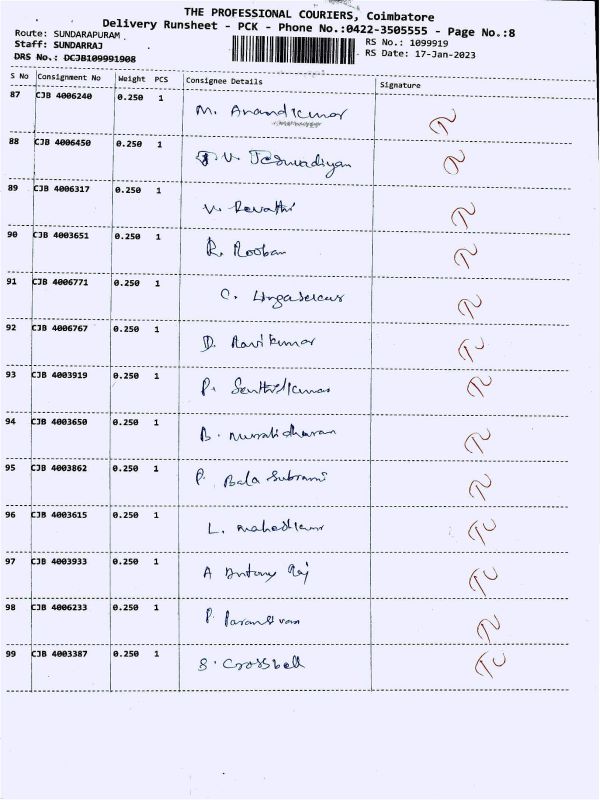 THE PROFESSIONAL COURIERS, Coimbatore
Delivery Runsheet - PCK - Phone No.:0422-3505555 - Page No.:8
Route: SUNDARAPURAM .
Staff: SUNDARRAJ
DRS No.: DCJB109991908
RS No.: 1099919
RS Date: 17-Jan-2023
S No Consignment No Weight PCS Consignee Details Signature
87 CJB 4006240 0.250 1 M. Anandkumar
88 CJB 4006450 0.250 1
89 CJB 4006317 0.250 1 V. Revathi
90 CJB 4003651 0.250 1 R. Rooban
91 CJB 4006771 0.250 1 C.
92 CJB 4006767 0.250 1 D. Ravikumar
93 CJB 4003919 0.250 1 P. Senthilkumar
94 CJB 4003650 0.250 1 B. Muralidharan
95 CJB 4003862 0.250 1 P. Bala Subramani
96 CJB 4003615 0.250 1 L.
97 CJB 4003933 0.250 1 A Antony Raj
98 CJB 4006233 0.250 1 P.
99 CJB 4003387 0.250 1 S. Crossbell